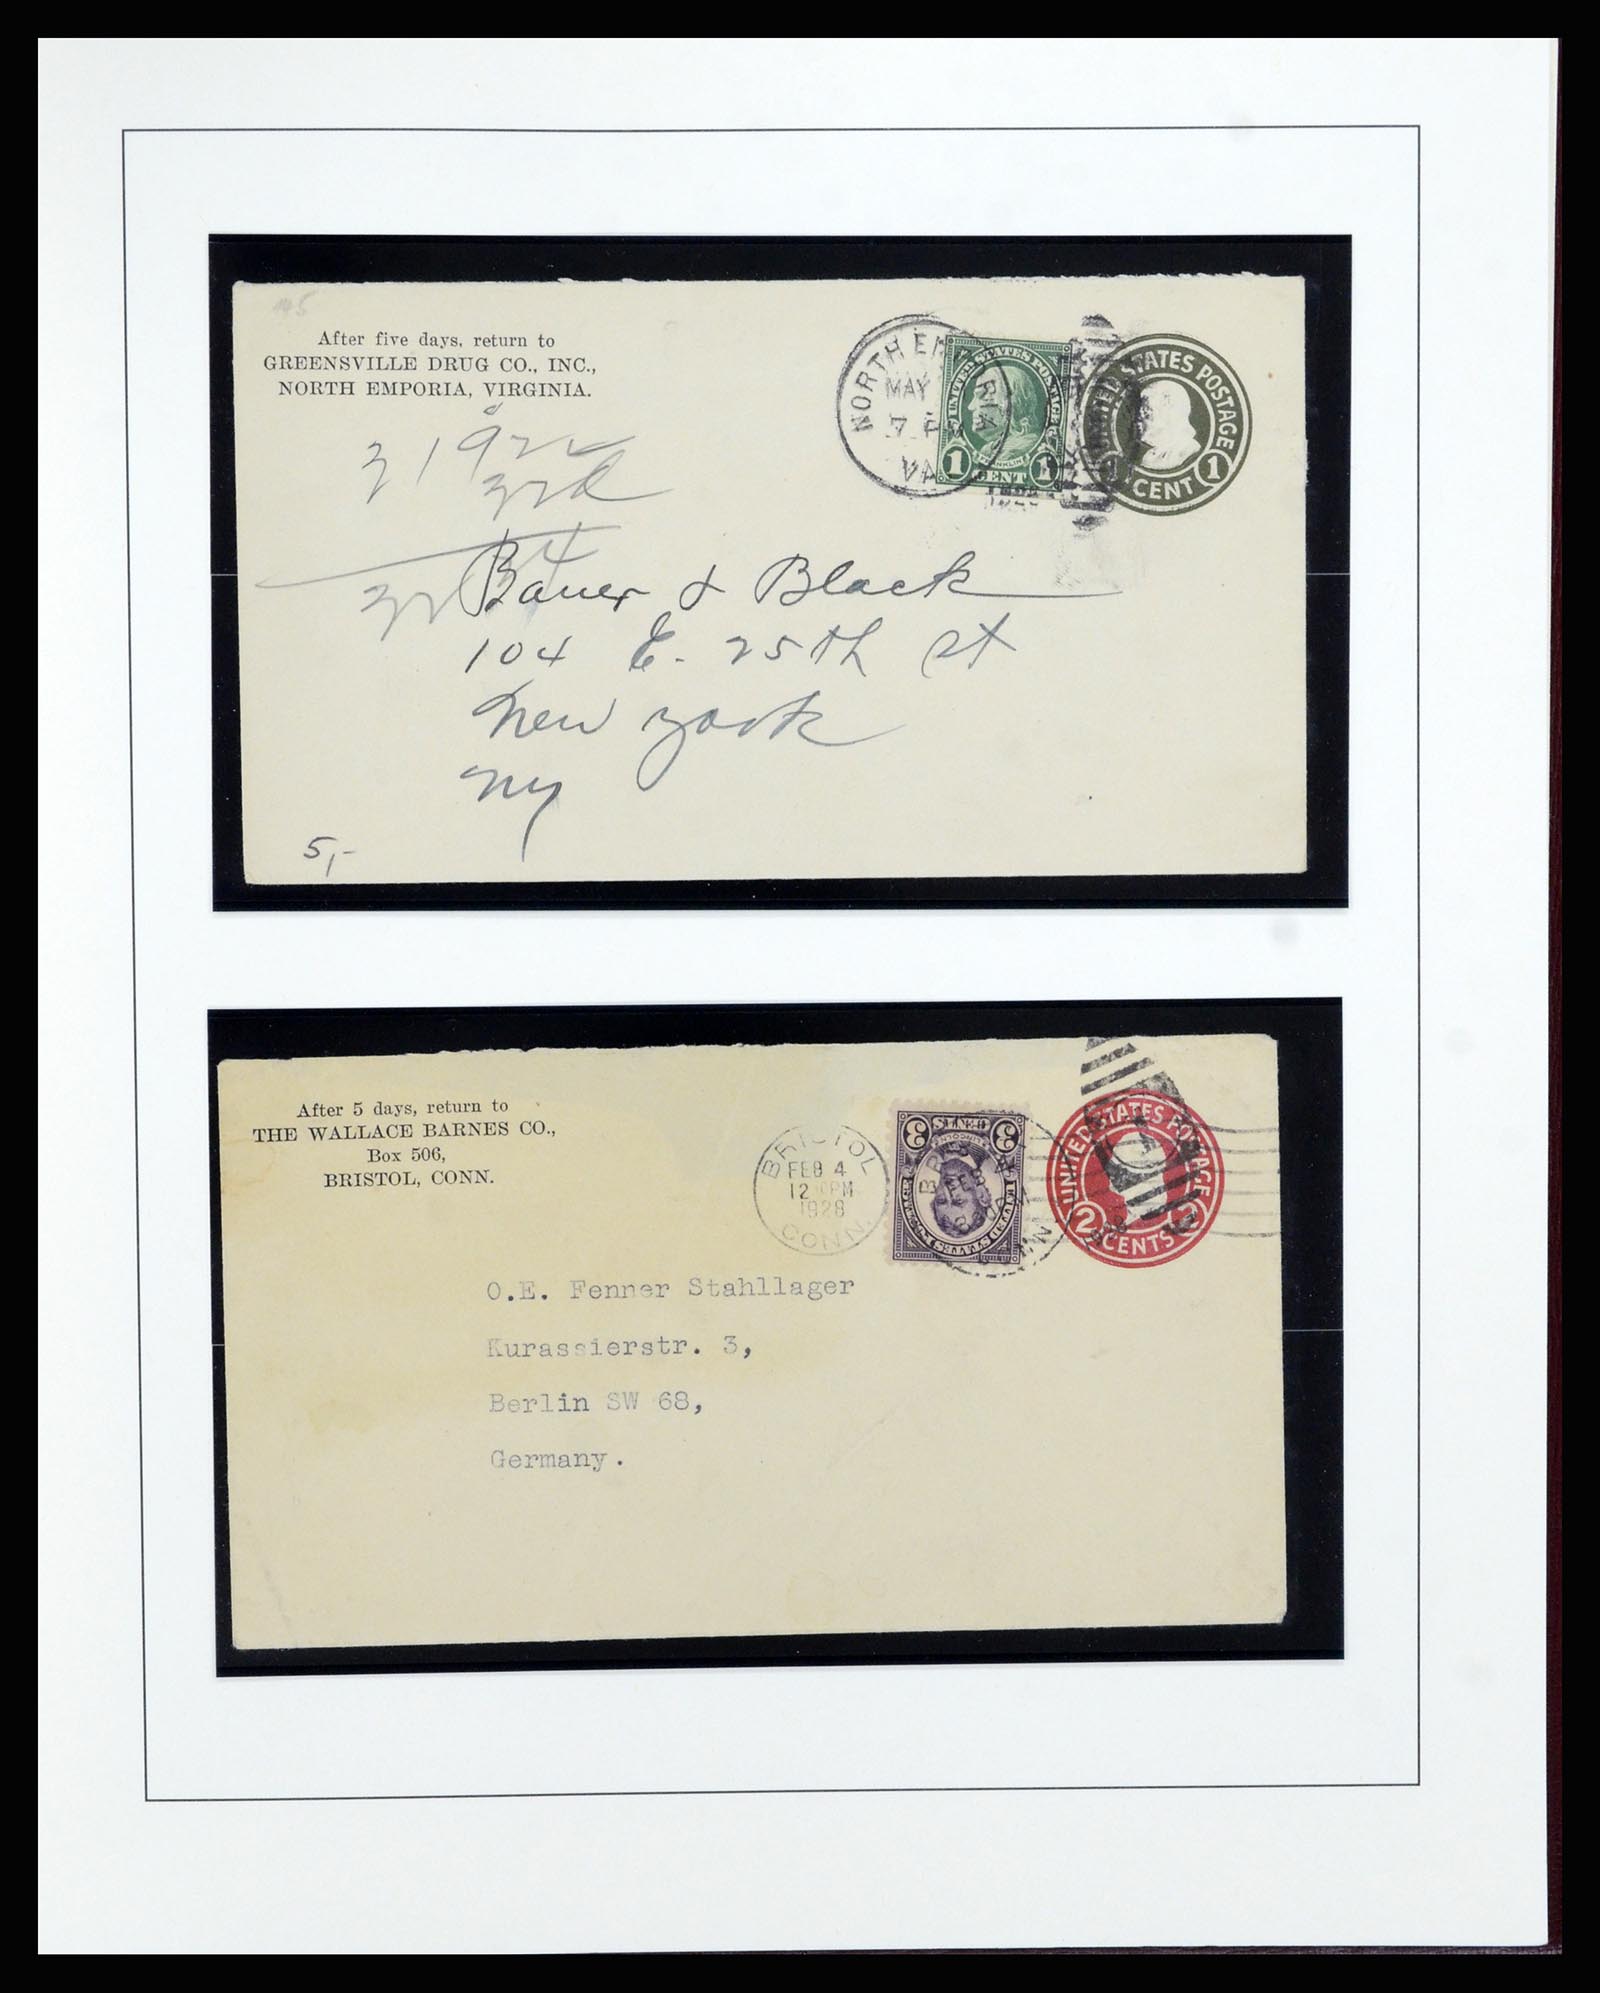 After five days, return to
GREENSVILLE DRUG CO., INC.,
NORTH EMPORIA, VIRGINIA.
NORTH EMPORIA
MAY
7 PM
VA
UNITED STATES POSTAGE
FRANKLIN
1 CENT 1
UNITED STATES POSTAGE
1 CENT 1
Bauer & Black
104 E. 25th st
New York
NY
5,-
After 5 days, return to
THE WALLACE BARNES CO.,
Box 506,
BRISTOL, CONN.
BRISTOL
FEB 4
12 PM
1928
CONN.
3 CENTS 3
LINCOLN
UNITED STATES POSTAGE
UNITED STATES POSTAGE
2 CENTS 2
O.E. Fenner Stahllager
Kurassierstr. 3,
Berlin SW 68,
Germany.